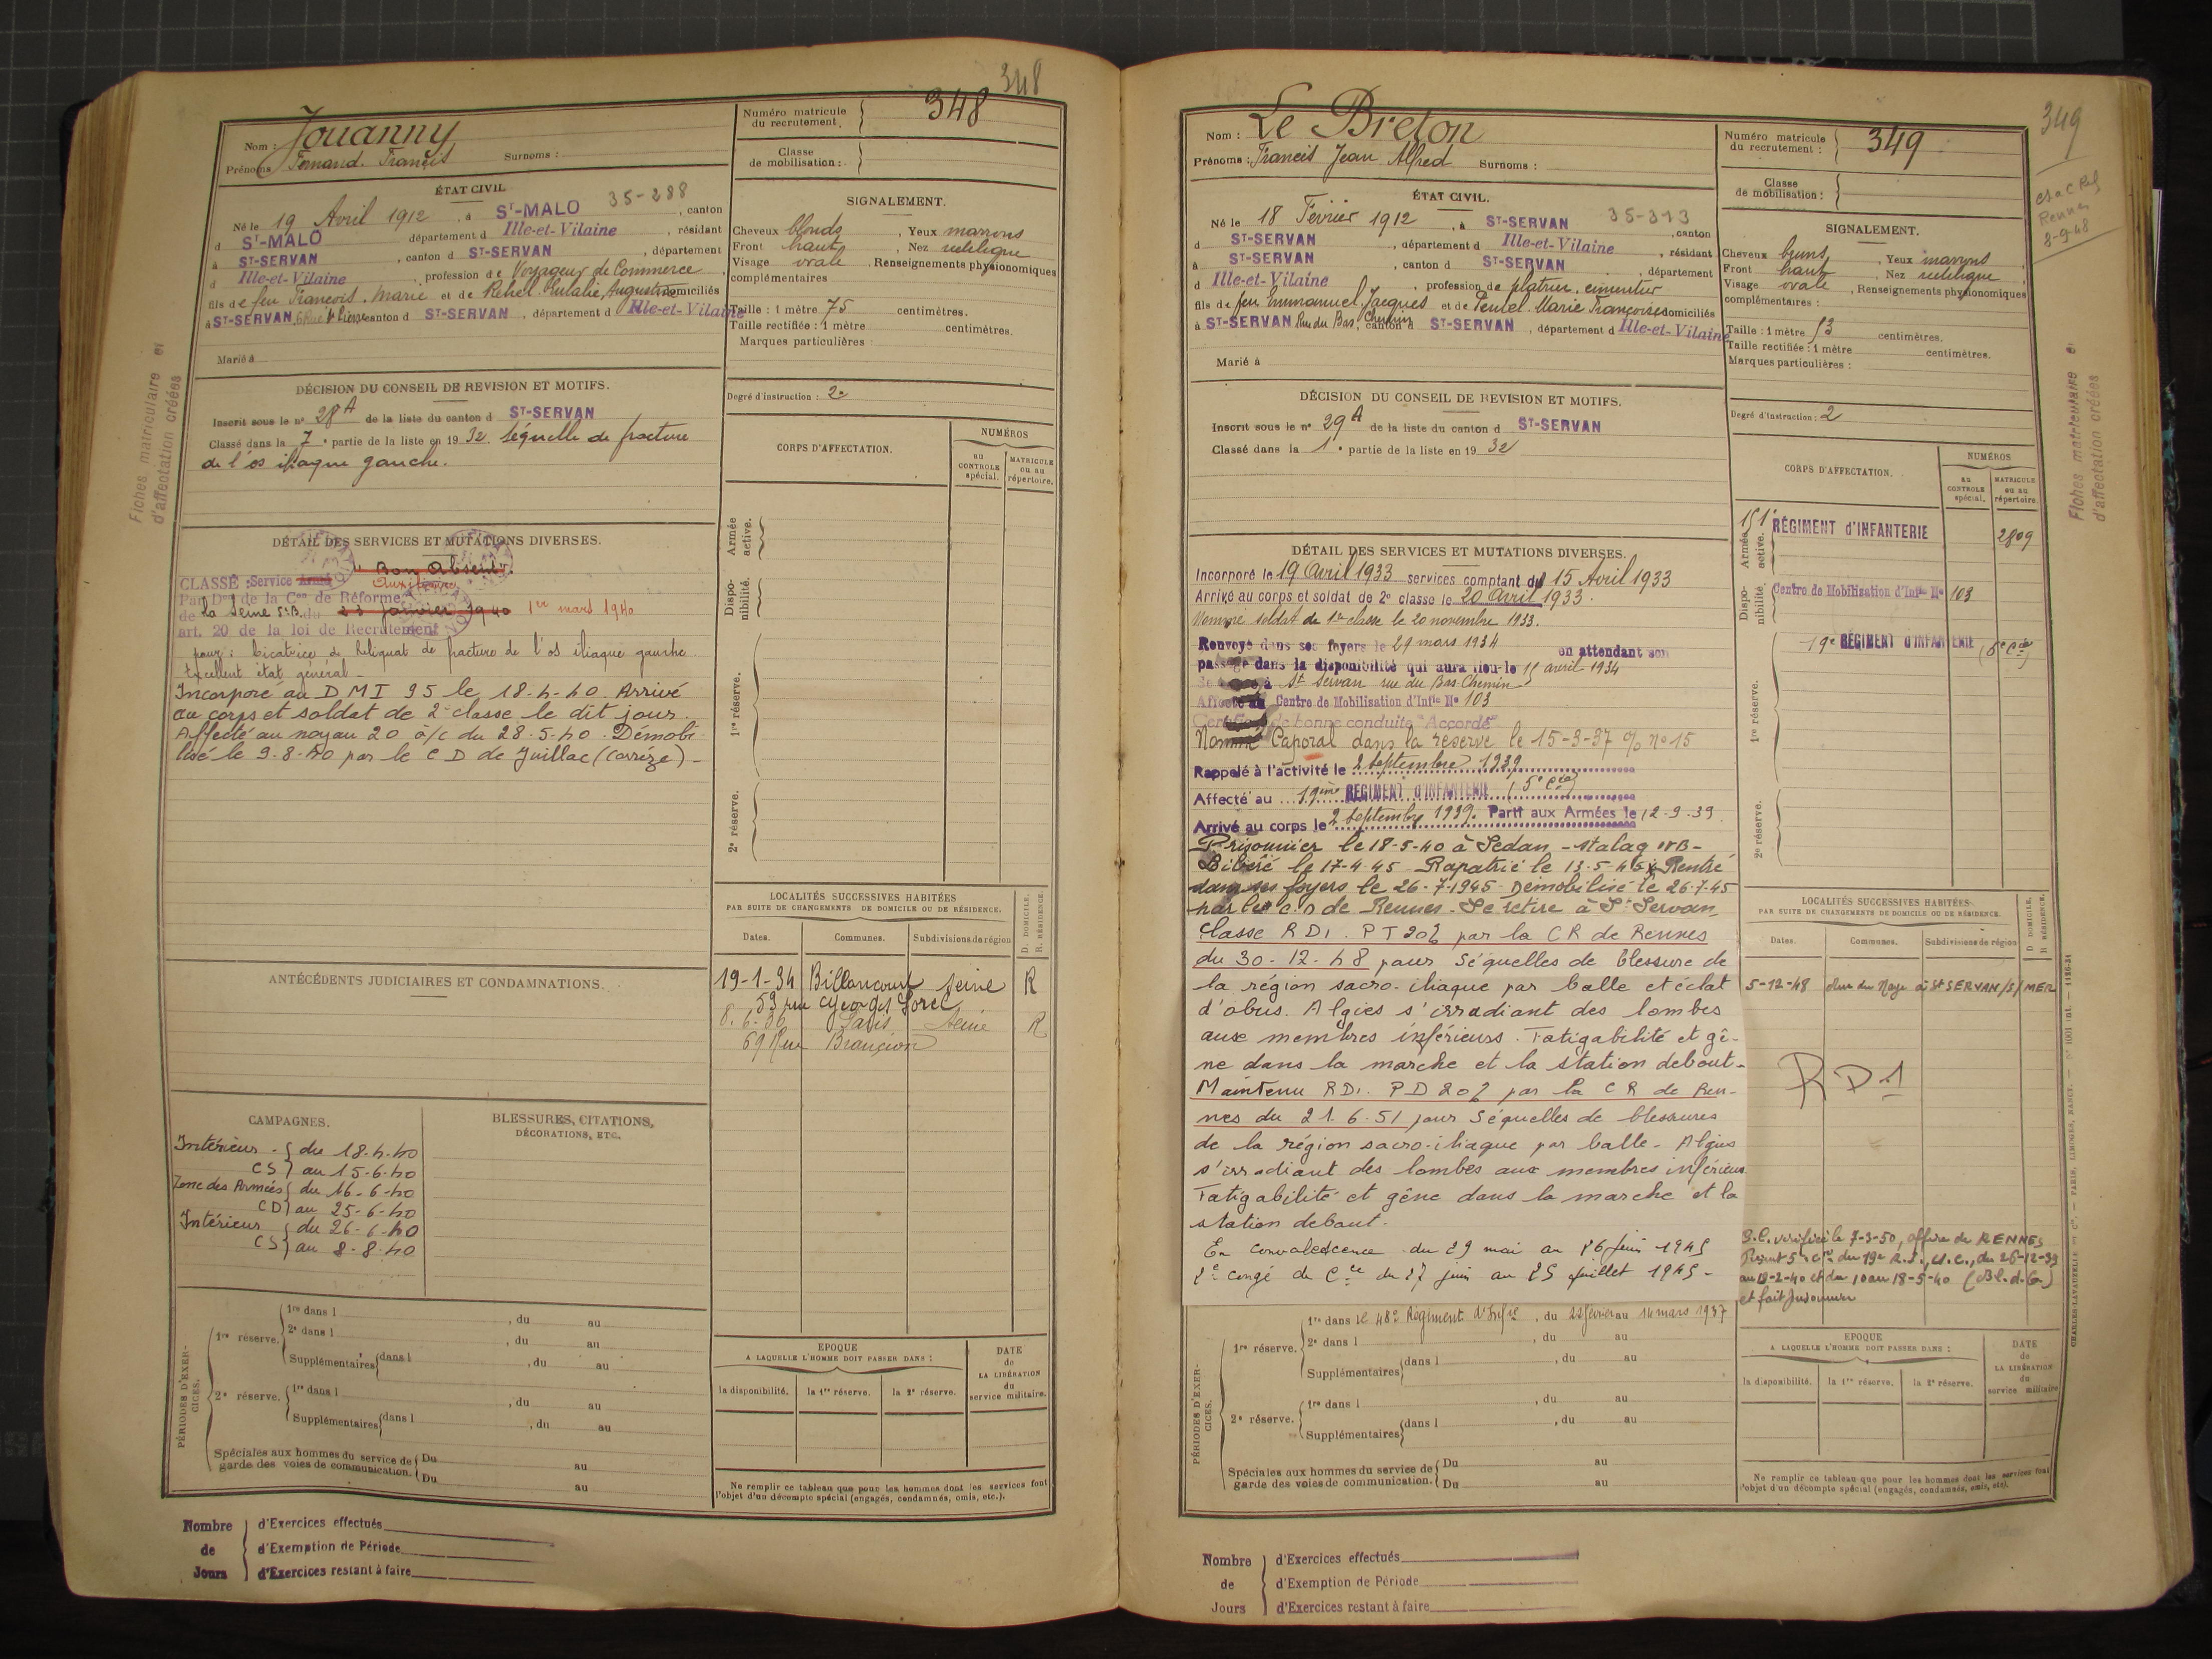 348
Nom : Jouanny
Prénoms Fernand. Francis Surnoms :
Numéro matricule du recrutement. 348
Classe de mobilisation :
ÉTAT CIVIL
35-288
Né le 19 Avril 1912, à ST-MALO, canton
d ST-MALO département d Ille-et-Vilaine, résidant
à ST-SERVAN, canton d ST-SERVAN, département
d Ille-et-Vilaine, profession de Voyageur de Commerce
fils de feu François. Marie et de Rehel. Eulalie, Augustine domiciliés
à ST-SERVAN, canton d ST-SERVAN, département d Ille-et-Vilaine
Marié à
SIGNALEMENT.
Cheveux blonds, Yeux marrons
Front haut, Nez rectiligne
Visage ovale, Renseignements physionomiques
complémentaires
Taille : 1 mètre 75 centimètres.
Taille rectifiée : 1 mètre centimètres.
Marques particulières :
Degré d'instruction : 2
Fiches matriculaire et
d'affectation créées
DÉCISION DU CONSEIL DE REVISION ET MOTIFS.
Inscrit sous le n° 28A de la liste du canton d ST-SERVAN
Classé dans la 7e partie de la liste en 1932. Séquelle de fracture
de l'os iliaque gauche.
CORPS D'AFFECTATION.
NUMÉROS
AU CONTROLE spécial.
MATRICULE ou au répertoire.
Armée active.
Disponibilité.
1re réserve.
2e réserve.
DÉTAIL DES SERVICES ET MUTATIONS DIVERSES.
"Bon Absent".
CLASSÉ : Service Armé Auxiliaire
Par Don de la Con de Réforme
de la Seine du 23 Janvier 1940 1er mars 1940
art. 20 de la loi de Recrutement
pour : Cicatrice de Reliquat de fracture de l'os iliaque gauche.
Excellent état général -
Incorporé au D M I 95 le 18-4-40. Arrivé
au corps et soldat de 2e classe le dit jour.
Affecté au noyau 20 à/c du 28-5-40. Démobi
lisé le 9-8-40 par le C D de Juillac (Corrèze) -
LOCALITÉS SUCCESSIVES HABITÉES
PAR SUITE DE CHANGEMENTS DE DOMICILE OU DE RÉSIDENCE.
D. DOMICILE.
R. RÉSIDENCE.
Dates. Communes. Subdivisions de région
19-1-34 Billancourt Seine R
59 rue Georges Sorel
Paris, Seine R
69 Rue Brancion
ANTÉCÉDENTS JUDICIAIRES ET CONDAMNATIONS.
CAMPAGNES.
BLESSURES, CITATIONS,
DÉCORATIONS, ETC.
Intérieur. du 18-4-40
CS au 15-6-40
Zone des Armées du 16-6-40
CD au 25-6-40
Intérieur du 26-6-40
CS au 8-8-40
PÉRIODES D'EXERCICES.
1re réserve. 1re dans l , du au
2e dans l , du au
Supplémentaires dans l , du au
2e réserve. 1re dans l , du au
Supplémentaires dans l , du au
Spéciales aux hommes du service de garde des voies de communication. Du au
Du au
EPOQUE
A LAQUELLE L'HOMME DOIT PASSER DANS :
la disponibilité. la 1re réserve. la 2e réserve.
DATE de LA LIBÉRATION du service militaire.
Ne remplir ce tableau que pour les hommes dont les services font
l'objet d'un décompte spécial (engagés, condamnés, omis, etc.).
Nombre de Jours
d'Exercices effectués
d'Exemption de Période
d'Exercices restant à faire
349
Nom : Le Breton
Prénoms : Francis Jean Alfred Surnoms :
Numéro matricule du recrutement : 349
Classe de mobilisation :
Rennes
8-9-48
ÉTAT CIVIL.
35-313
Né le 18 Février 1912, à ST-SERVAN, canton
d ST-SERVAN, département d Ille-et-Vilaine, résidant
à ST-SERVAN, canton d ST-SERVAN, département
d Ille-et-Vilaine, profession de platrier, cimentier
fils de feu Emmanuel, Jacques et de Marie Françoise domiciliés
à ST-SERVAN Rue du Bas. Chemin, canton d ST-SERVAN, département d Ille-et-Vilaine
Marié à
SIGNALEMENT.
Cheveux bruns, Yeux marrons
Front haut, Nez rectiligne
Visage ovale, Renseignements physionomiques
complémentaires :
Taille : 1 mètre 53 centimètres.
Taille rectifiée : 1 mètre centimètres.
Marques particulières :
Degré d'instruction : 2
Fiches matriculaire et
d'affectation créées
DÉCISION DU CONSEIL DE REVISION ET MOTIFS.
Inscrit sous le n° 29A de la liste du canton d ST-SERVAN
Classé dans la 1e partie de la liste en 1932
CORPS D'AFFECTATION.
NUMÉROS
AU CONTROLE spécial.
MATRICULE ou au répertoire.
Armée active. 151e RÉGIMENT D'INFANTERIE 2809
Disponibilité. Centre de Mobilisation d'Infie No 103
1re réserve. 19e RÉGIMENT D'INFANTERIE (5e Cie)
2e réserve.
DÉTAIL DES SERVICES ET MUTATIONS DIVERSES.
Incorporé le 19 Avril 1933 services comptant du 15 Avril 1933
Arrivé au corps et soldat de 2e classe le 20 Avril 1933.
Nommé soldat de 1re classe le 20 novembre 1933.
Renvoyé dans ses foyers le 29 mars 1934 en attendant son
passage dans la disponibilité qui aura lieu le 15 avril 1934
St Servan rue du Bas-Chemin
Affecté au Centre de Mobilisation d'Infie No 103
Certificat de bonne conduite "Accordé"
Nommé Caporal dans la réserve le 15-3-37 no 15
Rappelé à l'activité le 2 Septembre 1939
Affecté au 19ème RÉGIMENT D'INFANTERIE (5e Cie)
Arrivé au corps le 2 Septembre 1939. Parti aux Armées le 12-9-39
Prisonnier le 18-5-40 à Sedan - Stalag IVB -
Libéré le 17-4-45 - Rapatrié le 13-5-45. Rentré
dans ses foyers le 26-7-1945. Démobilisé le 26-7-45
par le C.D de Rennes. Se retire à St Servan,
Classé RD1. PT 20% par la CR de Rennes
du 30-12-48 pour Séquelles de blessure de
la région sacro-iliaque par balle et éclat
d'obus. Algies s'irradiant des lombes
aux membres inférieurs. Fatigabilité et gê-
ne dans la marche et la station debout -
Maintenu RD1. PD 20% par la CR de Ren-
nes du 21.6.51 pour Séquelles de blessures
de la région sacro-iliaque par balle - Algies
s'irradiant des lombes aux membres inférieurs
Fatigabilité et gêne dans la marche et la
station debout.
En convalescence du 29 mai au 26 juin 1945
2e congé de Cce du 27 juin au 25 juillet 1945 -
LOCALITÉS SUCCESSIVES HABITÉES
PAR SUITE DE CHANGEMENTS DE DOMICILE OU DE RÉSIDENCE.
D DOMICILE.
R RÉSIDENCE.
Dates. Communes. Subdivisions de région
5-12-48 à St SERVAN/S/MER
RD1
vérifié le 7-3-50, RENNES
du 19e R.I., U.C., du 26-12-39
du 10 au 18-5-40
et fait prisonnier
PÉRIODES D'EXERCICES.
1re réserve. 1re dans le 48e Régiment d'Infie, du 22 février au 14 mars 1937
2e dans l , du au
Supplémentaires dans l , du au
2e réserve. 1re dans l , du au
Supplémentaires dans l , du au
Spéciales aux hommes du service de garde des voies de communication. Du au
Du au
EPOQUE
A LAQUELLE L'HOMME DOIT PASSER DANS :
la disponibilité. la 1re réserve. la 2e réserve.
DATE de LA LIBÉRATION du service militaire
Ne remplir ce tableau que pour les hommes dont les services font
l'objet d'un décompte spécial (engagés, condamnés, omis, etc).
Nombre de Jours
d'Exercices effectués
d'Exemption de Période
d'Exercices restant à faire